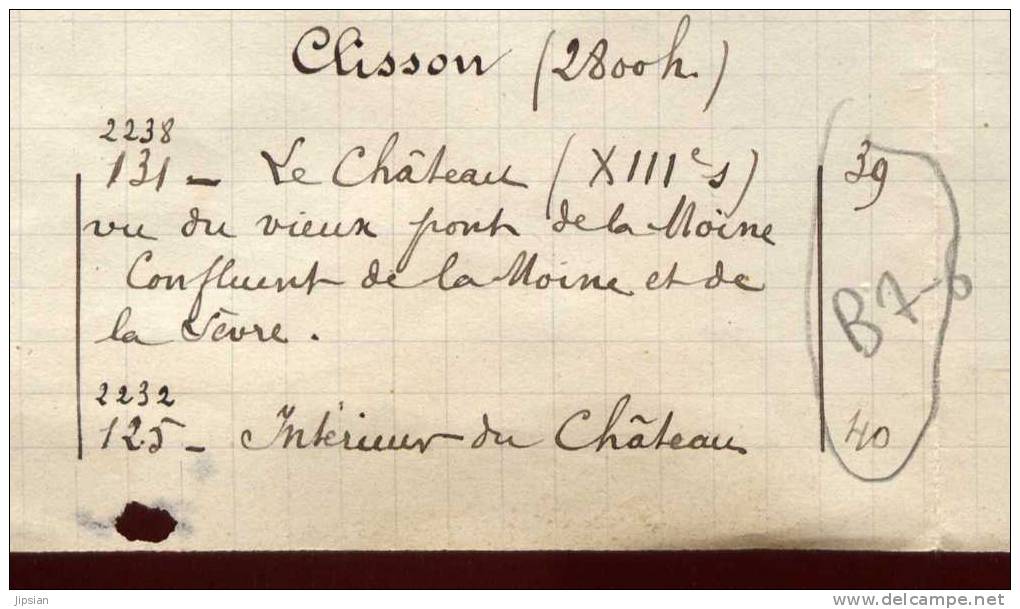 Clisson (2800 h.)
2238
131 - Le Château (XIIIe s) 39
vu du vieux pont de la Moine
Confluent de la Moine et de
la Sèvre.
B7-8
2232
125 - Intérieur du Château 40
jipsian
www.delcampe.net